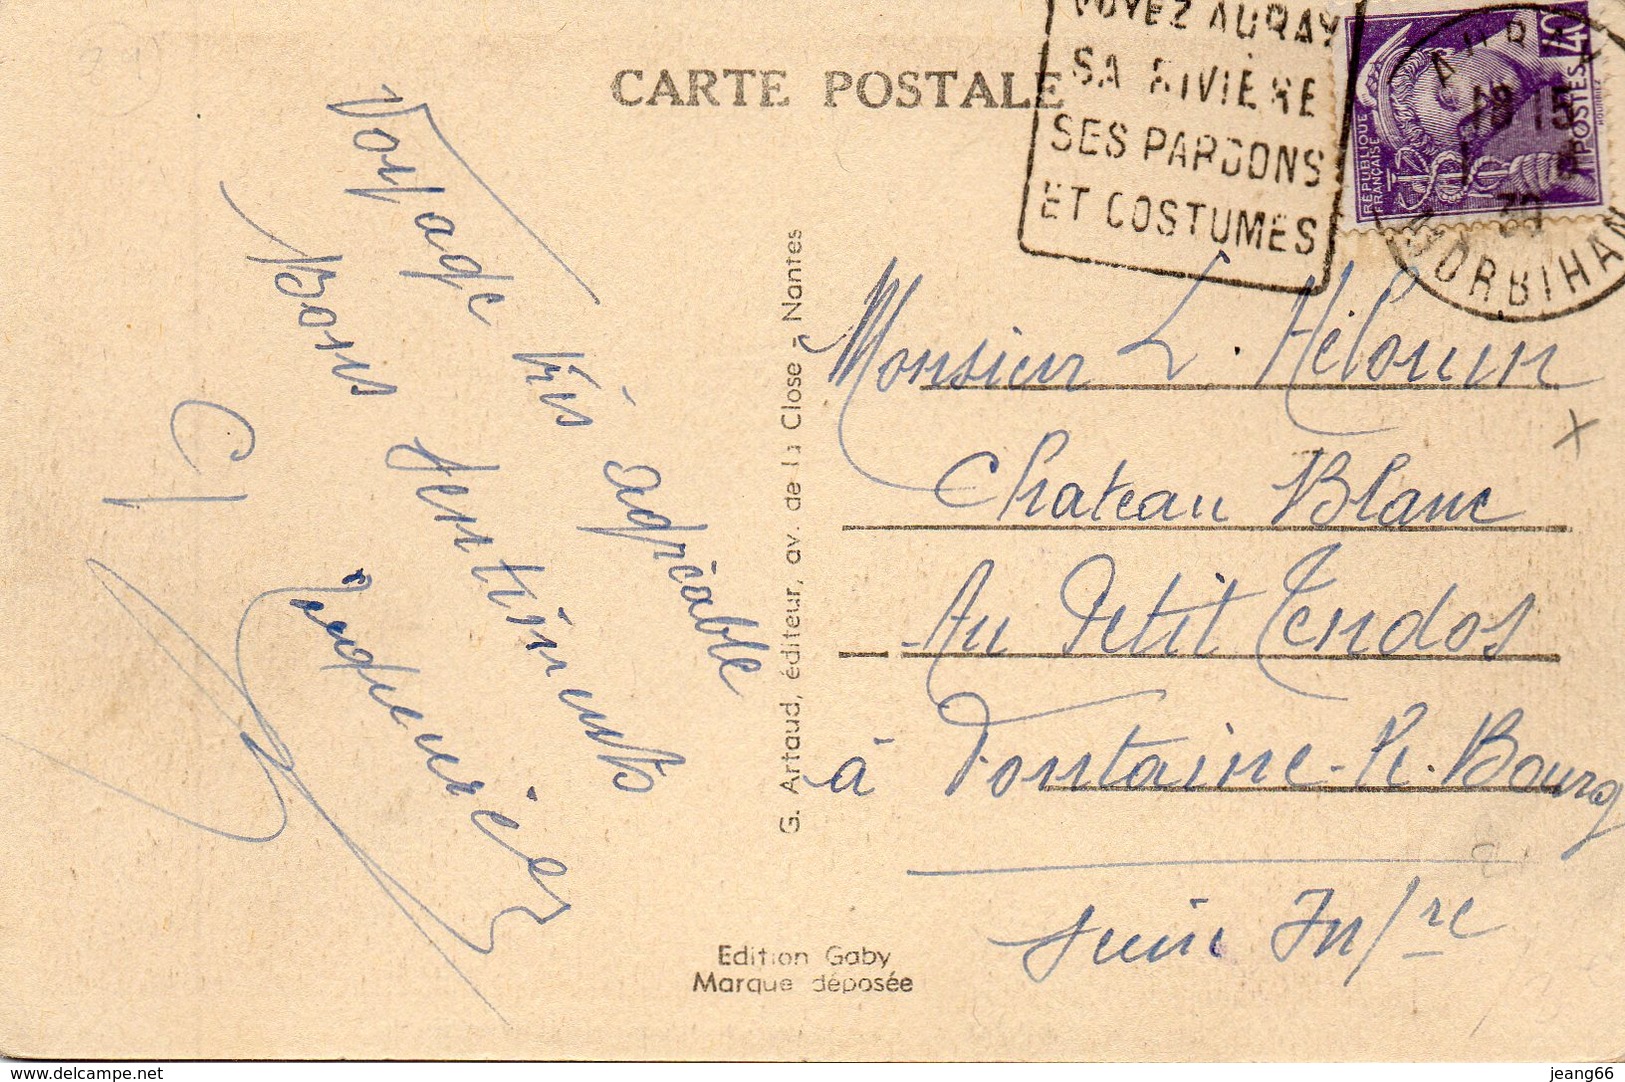 CARTE POSTALE
VOYEZ AURAY
SA RIVIÈRE
SES PARDONS
ET COSTUMES
RÉPUBLIQUE
FRANÇAISE
POSTES 40
AURAY
18 15
39
MORBIHAN
Voyage très agréable
Bons sentiments
G. Artaud, éditeur, av. de la Close - Nantes
Monsieur L. Hélouin
Chateau Blanc
Au Petit Tendos
à Fontaine-le-Bourg
Seine Infre
Edition Gaby
Marque déposée
www.delcampe.net
jeang66